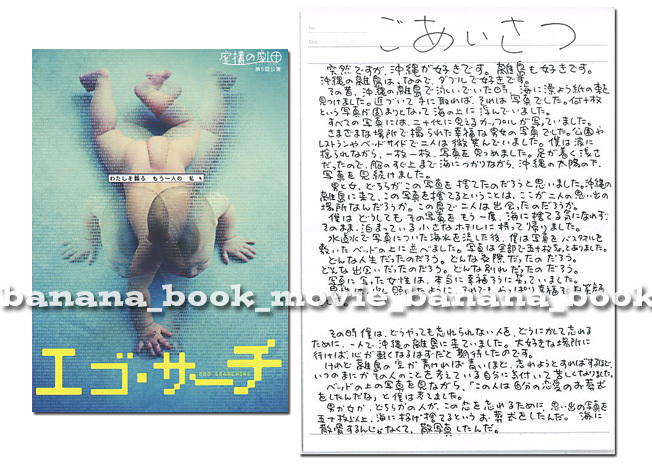 虚構の劇団
第5回公演
わたしを綴る もう一人の 私
エゴ・サーチ
EGO SEARCHING
ごあいさつ
突然ですが、沖縄が好きです。離島も好きです。
沖縄の離島は、なので、ダブルで好きです。
その昔、沖縄の離島で泳いでいた時、海に漂よう紙の束を
見つけました。近づいて手に取れば、それは写真でした。何十枚
という写真が固まりとなって海の上に浮んでいました。
すべての写真には、二十代に見えるカップルが写っていました。
さまざまな場所で撮られた幸福な男女の写真でした。公園や
レストランやベッドサイドで二人は微笑んでいました。僕は波に
揺られながら、一枚一枚、写真を見つめました。足が着く浅さ
だったので、胸のすぐ上まで海につかりながら、沖縄の太陽の下、
写真を見続けました。
男と女、どちらがこの写真を捨てたのだろうと思いました。沖縄の
離島に来て、この写真を捨てるということは、ここが二人の思い出の
場所なんだろうか。この島で二人は出会ったのだろうか。
僕はどうしてもその写真をもう一度、海に捨てる気になれず、
そのまま、泊まっている小さなホテルに持って帰りました。
水道水で写真についた海水を流した後、僕は写真をバスタオルを
敷いたベッドの上に並べました。写真は全部で五十枚ちかくありました。
どんな人生だったのだろう。どんな交際だったのだろう。
どんな出会いだったのだろう。どんな別れだったのだろう。
写真に写った女性は、本当に幸福そうに笑っていました。
banana_book_movie_banana_book
その時僕は、どうやっても忘れられない人を、どうにかして忘れる
ために、一人で沖縄の離島に来ていました。大好きな場所に
行けば、心が軽くなるはずだと期待したのです。
けれど離島の空が青ければ青いほど、忘れようとすればするほど、
いつのまにかその人のことを考えている自分に気付いて苦しくなりました。
ベッドの上の写真を見ながら、「この人は自分の恋愛のお葬式
をしたんだな」と僕は考えました。
男か女か、どちらかの人が、この恋を忘れるために思い出の写真を
五十枚以上、海に投げ捨てるというお葬式をしたんだ。海に
散骨するんじゃなくて、散写真したんだ。